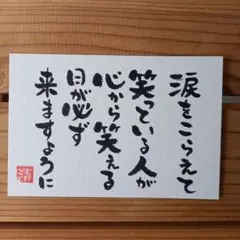 涙をこらえて
笑っている人が
心から笑える
日が必ず
来ますように
清